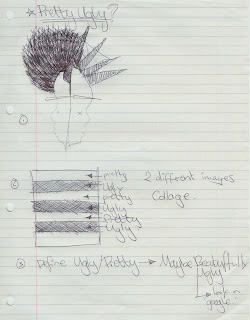 * Pretty Ugly?
①
② pretty 2 different images
Ugly
pretty Collage.
Ugly
Pretty
Ugly
③ Define Ugly/Pretty → Maybe Beatyfully
Ugly
→ look in
google.